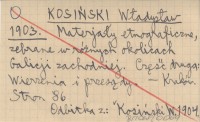 KOSIŃSKI Władysław
1903. Materjały etnograficzne,
zebrane w różnych okolicach
Galicji zachodniej. Część druga:
Wierzenia i przesądy. Kraków.
Stron 86
Odbitka z: "Kosiński W. 1904